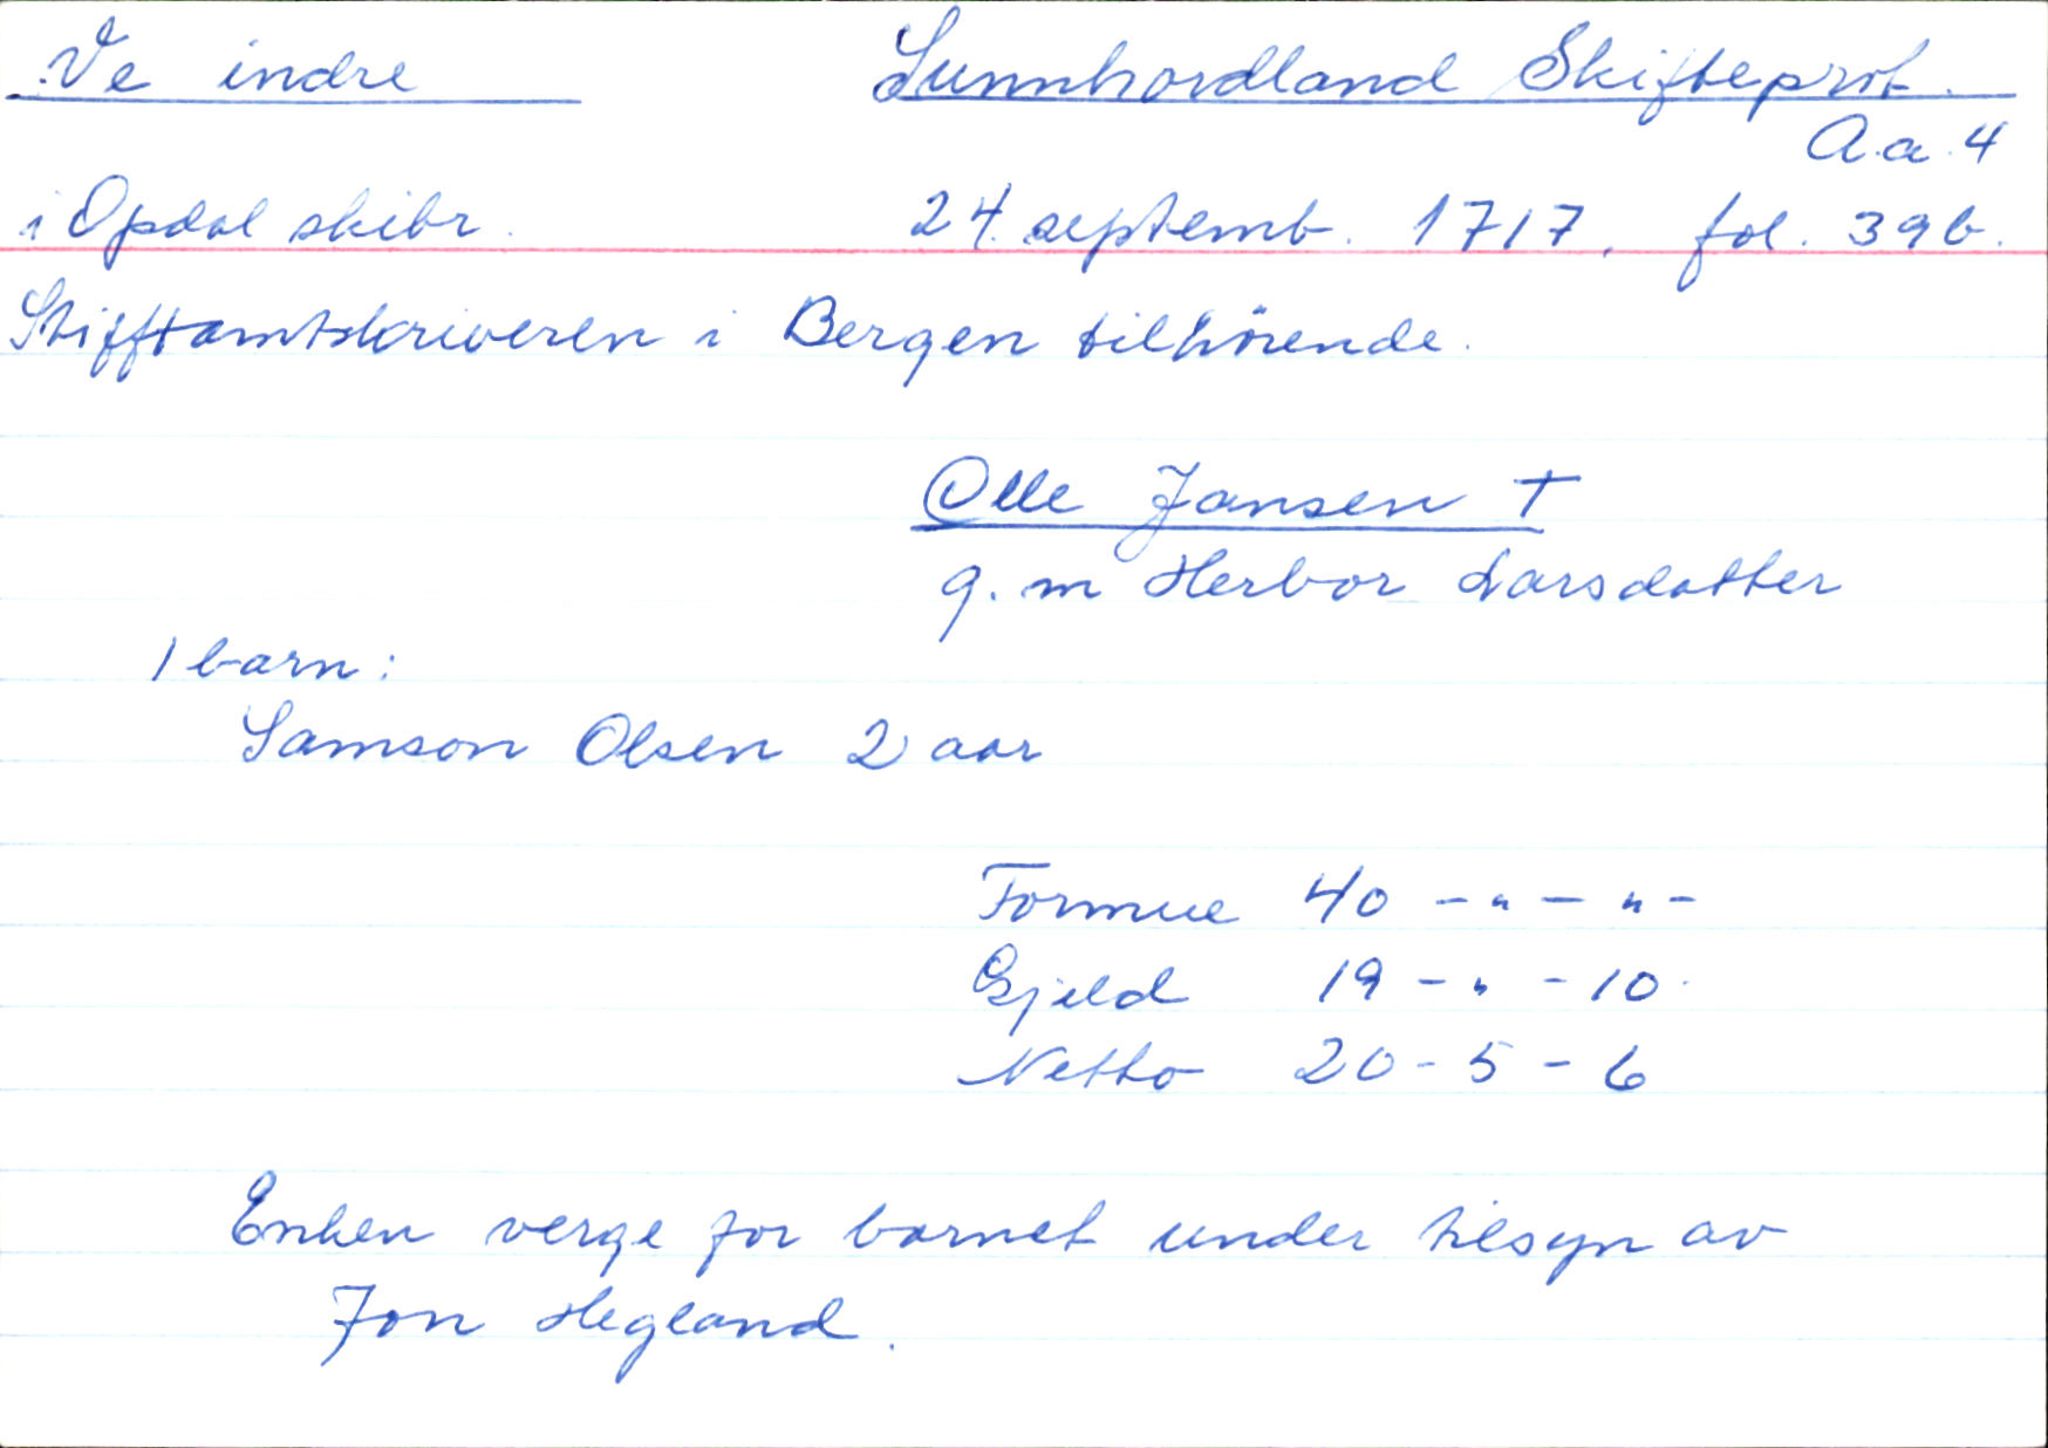 Ve indre
Sunnhordland Skifteprot.
A.a.4
i Opdal skibr.
24. septemb. 1717, fol. 39b.
Stifftamtskriveren i Bergen tilhörende.
Olle Jansen †
g. m Herbor Larsdatter
1 barn:
Samson Olsen 2 aar
Formue 40 - " - " -
Gjeld 19 - " - 10.
Netto 20 - 5 - 6
Enken verge for barnet under tilsyn av
Jon Hegland.